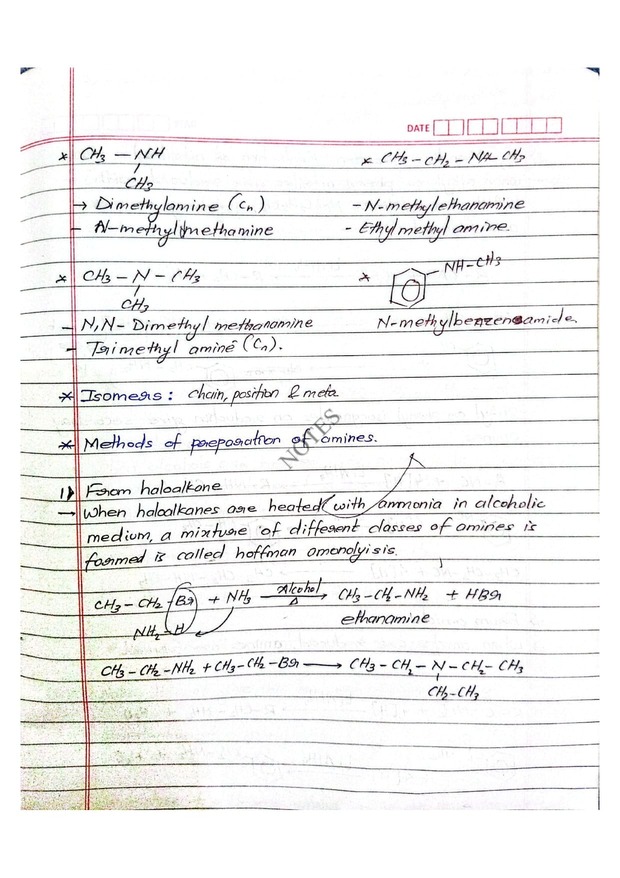 DATE
* CH3 — NH
CH3
→ Dimethylamine (Cn)
- N-methyl methamine
* CH3 - CH2 - NH - CH3
- N-methylethanamine
- Ethyl methyl amine.
* CH3 - N - CH3
CH3
- N,N- Dimethyl methanamine
- Trimethyl amine (Cn).
* NH-CH3
N-methylbenzeneamide
* Isomers: chain, position & meta
* Methods of preparation of amines.
NOTES
1) From haloalkane
→ When haloalkanes are heated with ammonia in alcoholic
medium, a mixture of different classes of amines is
formed is called hoffman amonolyisis.
CH3 - CH2 - Br + NH3 Alcohol Δ → CH3 - CH2 - NH2 + HBr
NH2 - H ethanamine
CH3 - CH2 - NH2 + CH3 - CH2 - Br → CH3 - CH2 - N - CH2 - CH3
CH2 - CH3